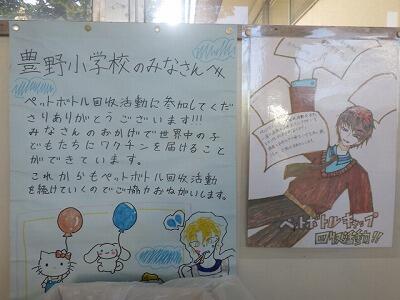 豊野小学校のみなさんへ
ペットボトル回収活動に参加してくだ
さりありがとうございます!!!
みなさんのおかげで世界中の子
どもたちにワクチンを届けること
ができています。
これからもペットボトル回収活動
を続けていくのでご協力おねがいします。
ペットボトルキャップ
回収活動!!